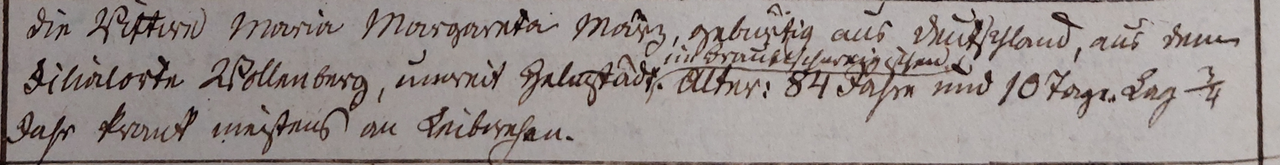 die Wittwe Maria Margareta März, gebürtig aus Deutschland, aus dem
im Braunschweigischen
Filialorte Wollenberg, unweit Helmstädt. Alter: 84 Jahre und 10 Tage. Lag 3/4
Jahr krank meistens an Leibwehen.